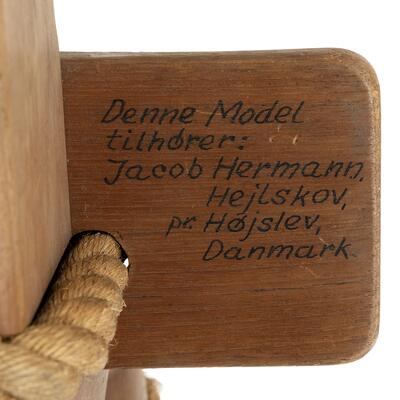 Denne Model
tilhører:
Jacob Hermann,
Hejlskov,
pr. Højslev,
Danmark.